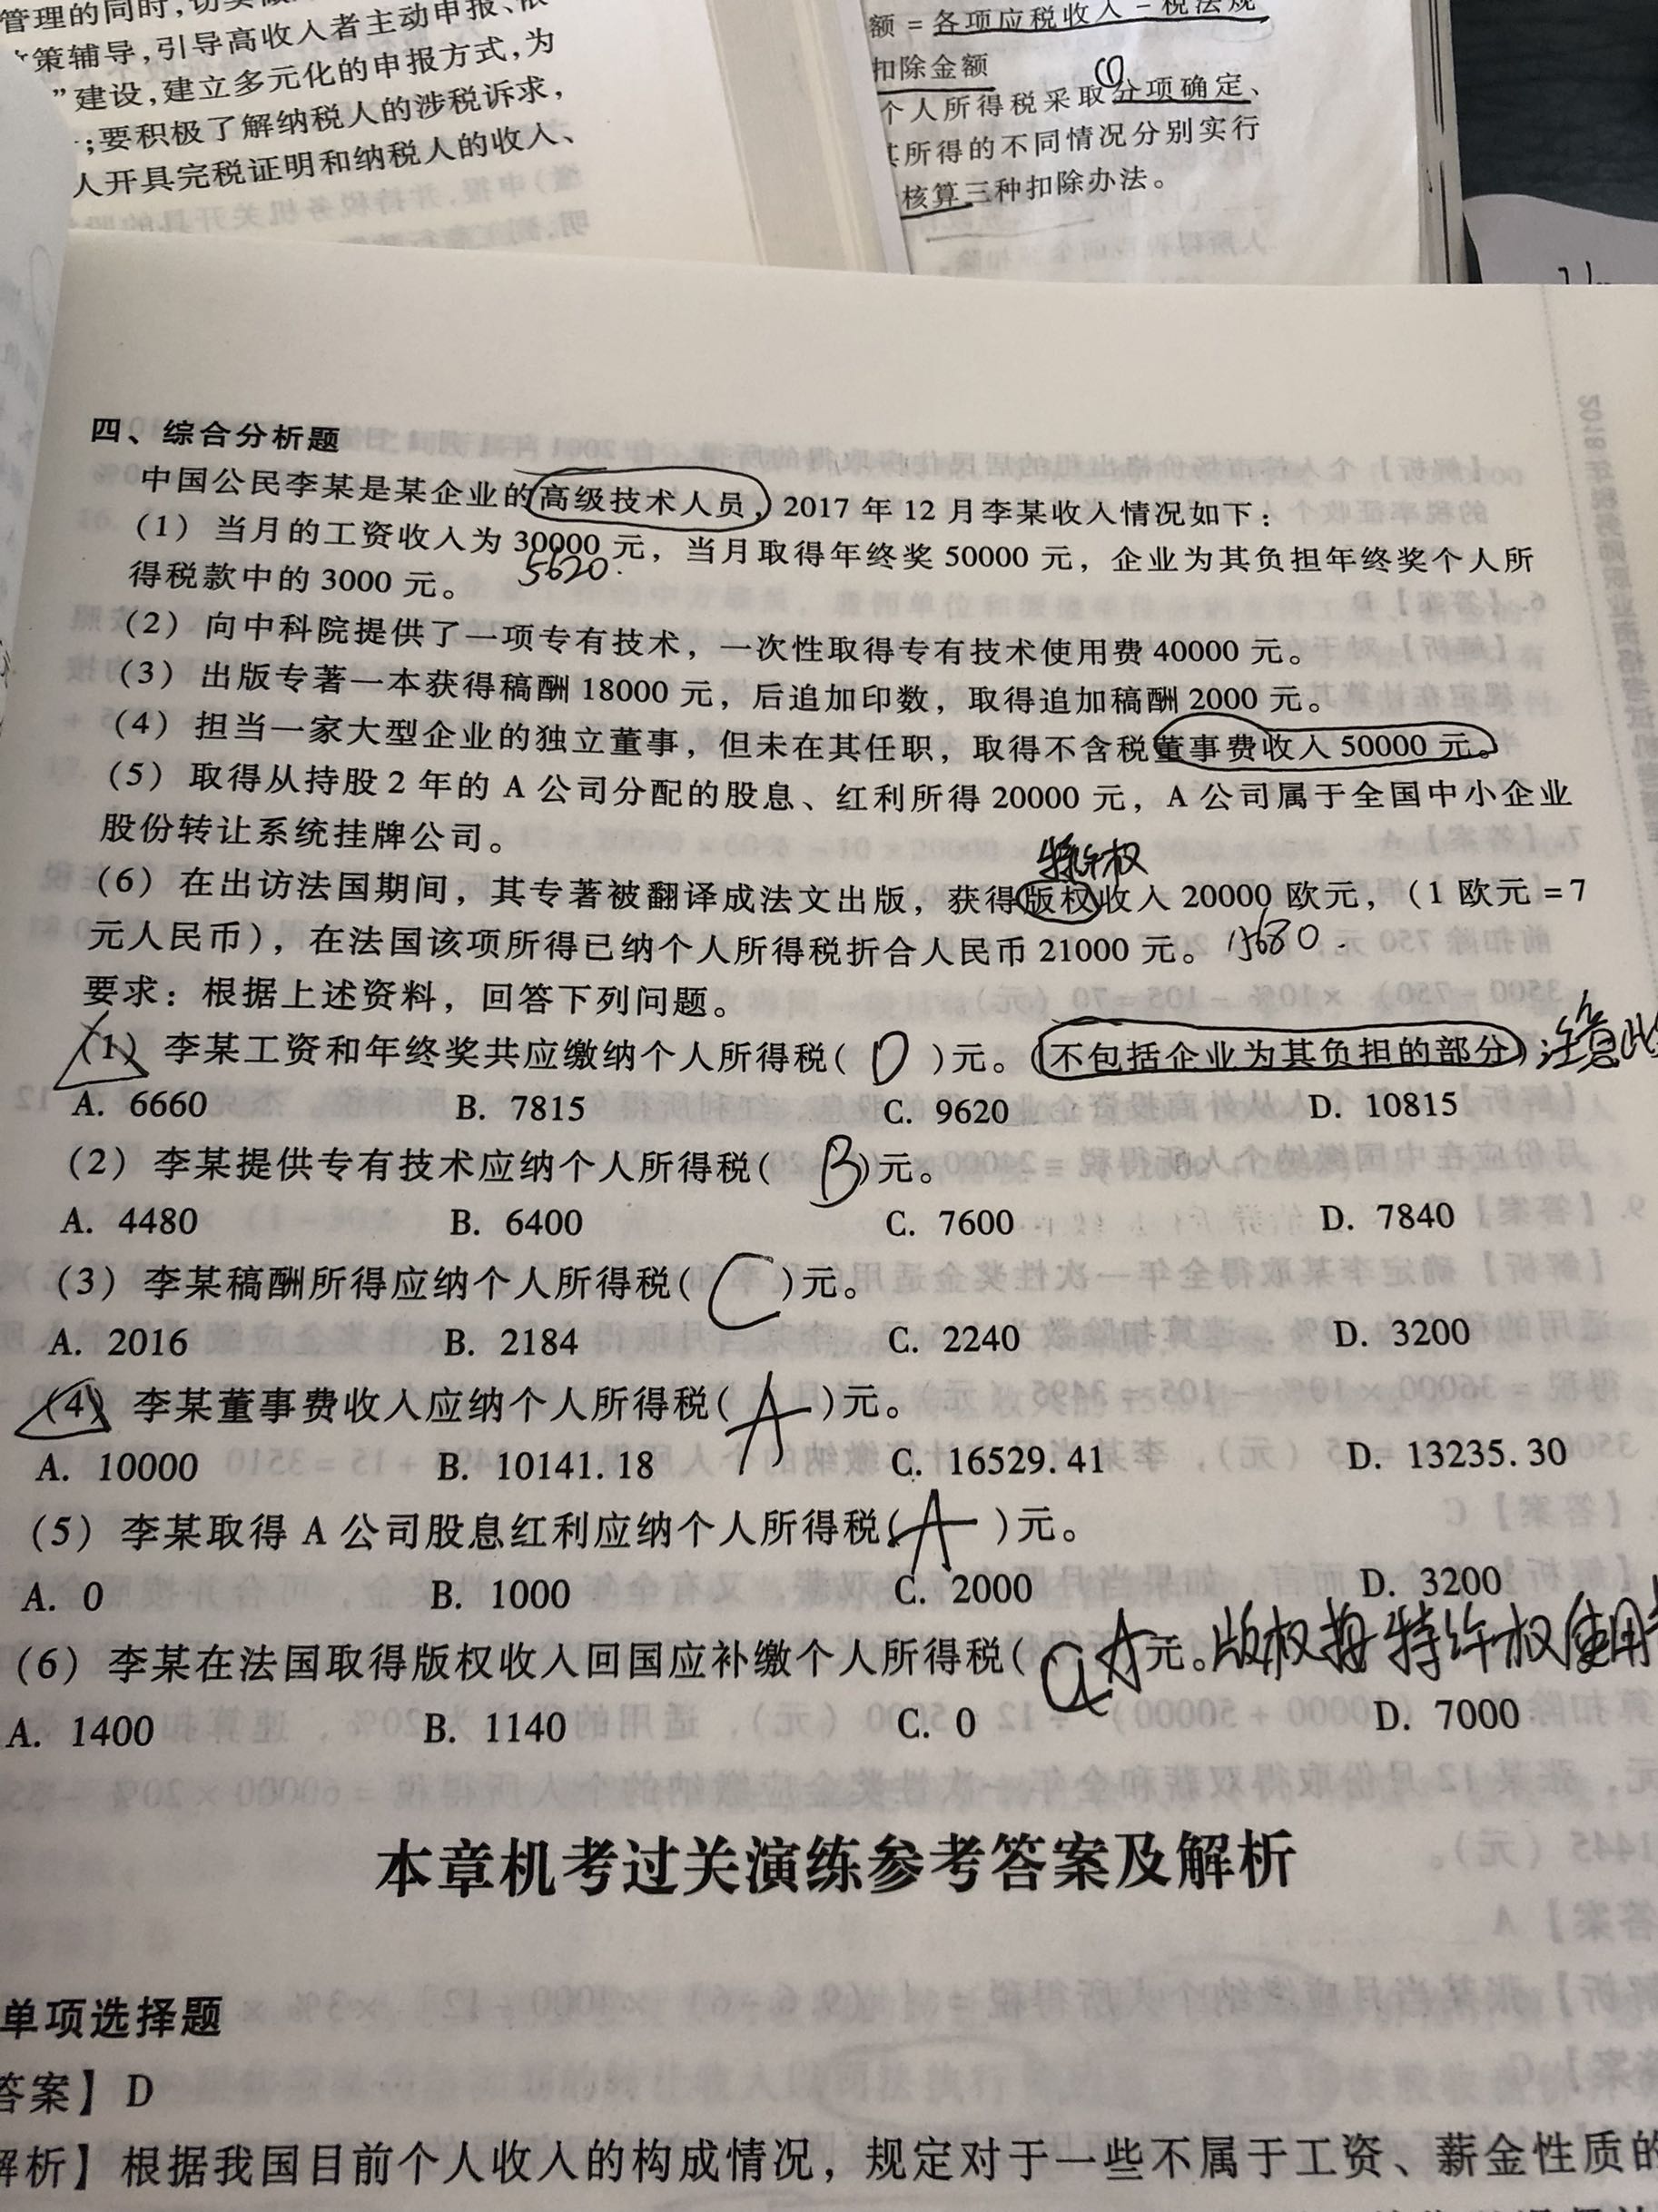 管理的同时,切实
策辅导,引导高收入者主动申报、依
”建设,建立多元化的申报方式,为
;要积极了解纳税人的涉税诉求,
人开具完税证明和纳税人的收入、
额=各项应税收入-税法规
扣除金额
个人所得税采取分项确定、
其所得的不同情况分别实行
核算三种扣除办法。
四、综合分析题
中国公民李某是某企业的高级技术人员,2017年12月李某收入情况如下:
(1)当月的工资收入为30000元,当月取得年终奖50000元,企业为其负担年终奖个人所
5620.
得税款中的3000元。
(2)向中科院提供了一项专有技术,一次性取得专有技术使用费40000元。
(3)出版专著一本获得稿酬18000元,后追加印数,取得追加稿酬2000元。
(4)担当一家大型企业的独立董事,但未在其任职,取得不含税董事费收入50000元。
(5)取得从持股2年的A公司分配的股息、红利所得20000元,A公司属于全国中小企业
股份转让系统挂牌公司。
特许权
(6)在出访法国期间,其专著被翻译成法文出版,获得版权收入20000欧元,(1欧元=7
元人民币),在法国该项所得已纳个人所得税折合人民币21000元。
要求:根据上述资料,回答下列问题。
(1)李某工资和年终奖共应缴纳个人所得税( D )元。(不包括企业为其负担的部分)注意此
A. 6660 B. 7815 C. 9620 D. 10815
(2)李某提供专有技术应纳个人所得税( B )元。
A. 4480 B. 6400 C. 7600 D. 7840
(3)李某稿酬所得应纳个人所得税( C )元。
A. 2016 B. 2184 C. 2240 D. 3200
(4)李某董事费收入应纳个人所得税( A )元。
A. 10000 B. 10141.18 C. 16529.41 D. 13235.30
(5)李某取得A公司股息红利应纳个人所得税( A )元。
A. 0 B. 1000 C. 2000 D. 3200
(6)李某在法国取得版权收入回国应补缴个人所得税( A 元。版权按特许权使用
A. 1400 B. 1140 C. 0 D. 7000
本章机考过关演练参考答案及解析
单项选择题
答案】D
解析】根据我国目前个人收入的构成情况,规定对于一些不属于工资、薪金性质的